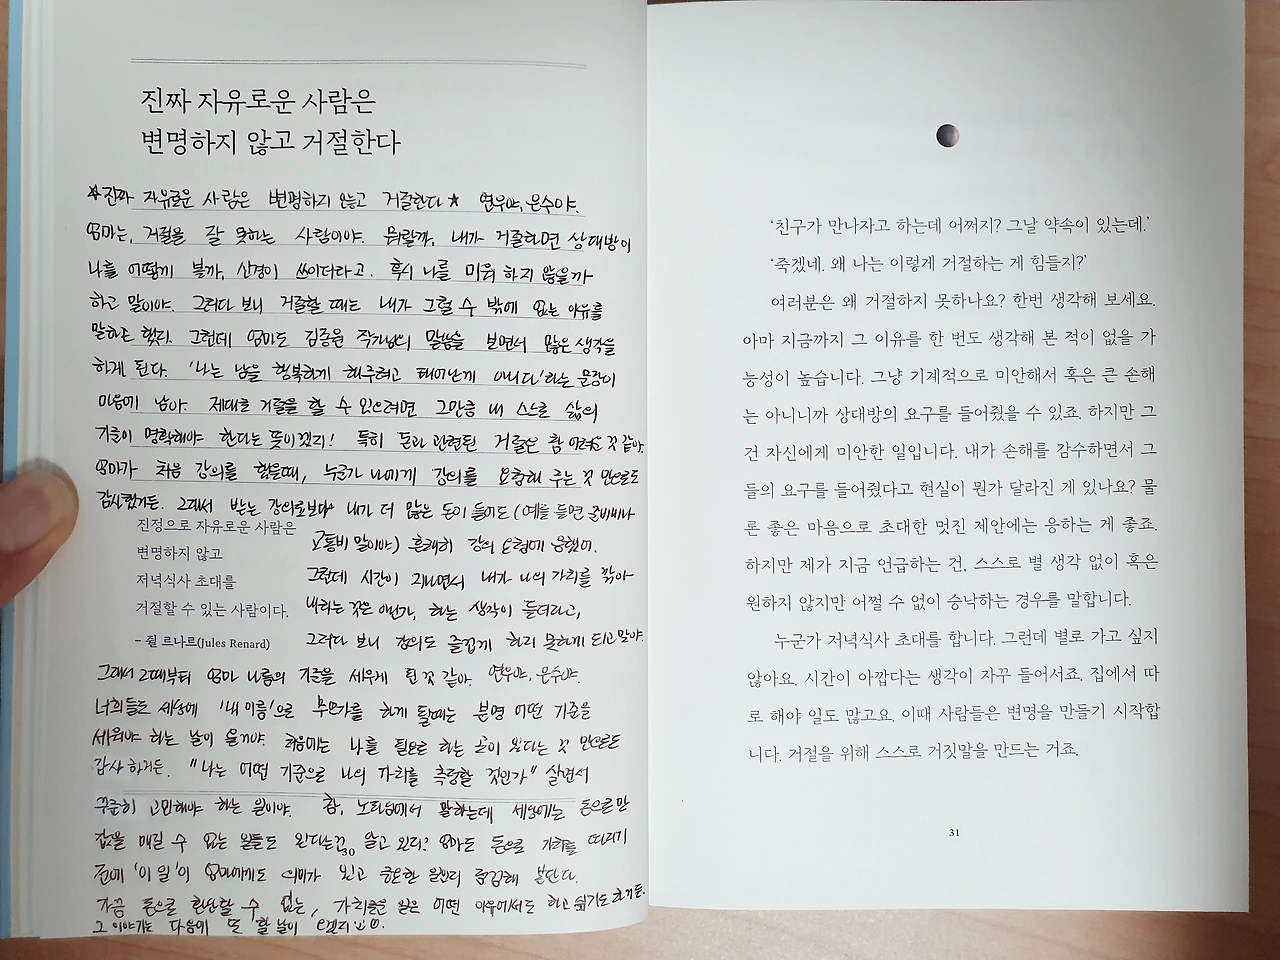 진짜 자유로운 사람은
변명하지 않고 거절한다
☆진짜 자유로운 사람은 변명하지 않고 거절한다★ 연우야, 은수야.
엄마는, 거절을 잘 못하는 사람이야. 뭐랄까, 내가 거절하면 상대방이
나를 어떻게 볼까, 신경이 쓰이더라고. 혹시 나를 미워 하지 않을까
하고 말이야. 그러다 보니 거절할 때는 내가 그럴 수 밖에 없는 이유를
말하곤 했지. 그런데 엄마도 김종원 작가님의 말씀을 보면서 많은 생각을
하게 된다. '나는 남을 행복하게 해주려고 태어난게 아니다'하는 문장이
마음에 남아. 제대로 거절을 할 수 있으려면 그만큼 내 스스로 삶의
기준이 명확해야 한다는 뜻이겠지! 특히 돈과 관련된 거절은 참 어려운 것 같아.
엄마가 처음 강의를 했을때, 누군가 나에게 강의를 요청해 주는 것 만으로도
감사했거든. 그래서 받는 강의료보다 내가 더 많은 돈이 들어도 (예를 들면 준비비나
교통비 말이야) 흔쾌히 강의 요청에 응했어.
그런데 시간이 지나면서 내가 나의 가치를 깎아
내리는 것은 아닌가, 하는 생각이 들더라고,
그러다 보니 강의도 즐겁게 하지 못하게 되고 말야.
진정으로 자유로운 사람은
변명하지 않고
저녁식사 초대를
거절할 수 있는 사람이다.
– 쥘 르나르(Jules Renard)
그래서 그때부터 엄마 나름의 기준을 세우게 된 것 같아. 연우야, 은수야.
너희들도 세상에 '내 이름'으로 무언가를 하게 될때는 분명 어떤 기준을
세워야 하는 날이 올거야. 처음에는 나를 필요로 하는 곳이 있다는 것 만으로도
감사 하거든. "나는 어떤 기준으로 나의 가치를 측정할 것인가" 살면서
꾸준히 고민해야 하는 일이야. 참, 노타님에서 말하는데 세상에는 돈으로만
값을 매길 수 없는 일들도 있다는건 알고 있지? 엄마도 돈으로 가치를 따지기
전에 '이 일'이 엄마에게도 의미가 있고 충분한 일인지 점검해 본단다.
가끔 돈으로 환산할 수 없는, 가치로운 일은 어떤 이유에서도 하고 싶기도 하거든.
그 이야기는 다음에 또 할 날이 오겠지
30
'친구가 만나자고 하는데 어쩌지? 그날 약속이 있는데.'
'죽겠네. 왜 나는 이렇게 거절하는 게 힘들지?'
여러분은 왜 거절하지 못하나요? 한번 생각해 보세요.
아마 지금까지 그 이유를 한 번도 생각해 본 적이 없을 가
능성이 높습니다. 그냥 기계적으로 미안해서 혹은 큰 손해
는 아니니까 상대방의 요구를 들어줬을 수 있죠. 하지만 그
건 자신에게 미안한 일입니다. 내가 손해를 감수하면서 그
들의 요구를 들어줬다고 현실이 뭔가 달라진 게 있나요? 물
론 좋은 마음으로 초대한 멋진 제안에는 응하는 게 좋죠.
하지만 제가 지금 언급하는 건, 스스로 별 생각 없이 혹은
원하지 않지만 어쩔 수 없이 승낙하는 경우를 말합니다.
누군가 저녁식사 초대를 합니다. 그런데 별로 가고 싶지
않아요. 시간이 아깝다는 생각이 자꾸 들어서죠. 집에서 따
로 해야 일도 많고요. 이때 사람들은 변명을 만들기 시작합
니다. 거절을 위해 스스로 거짓말을 만드는 거죠.
31